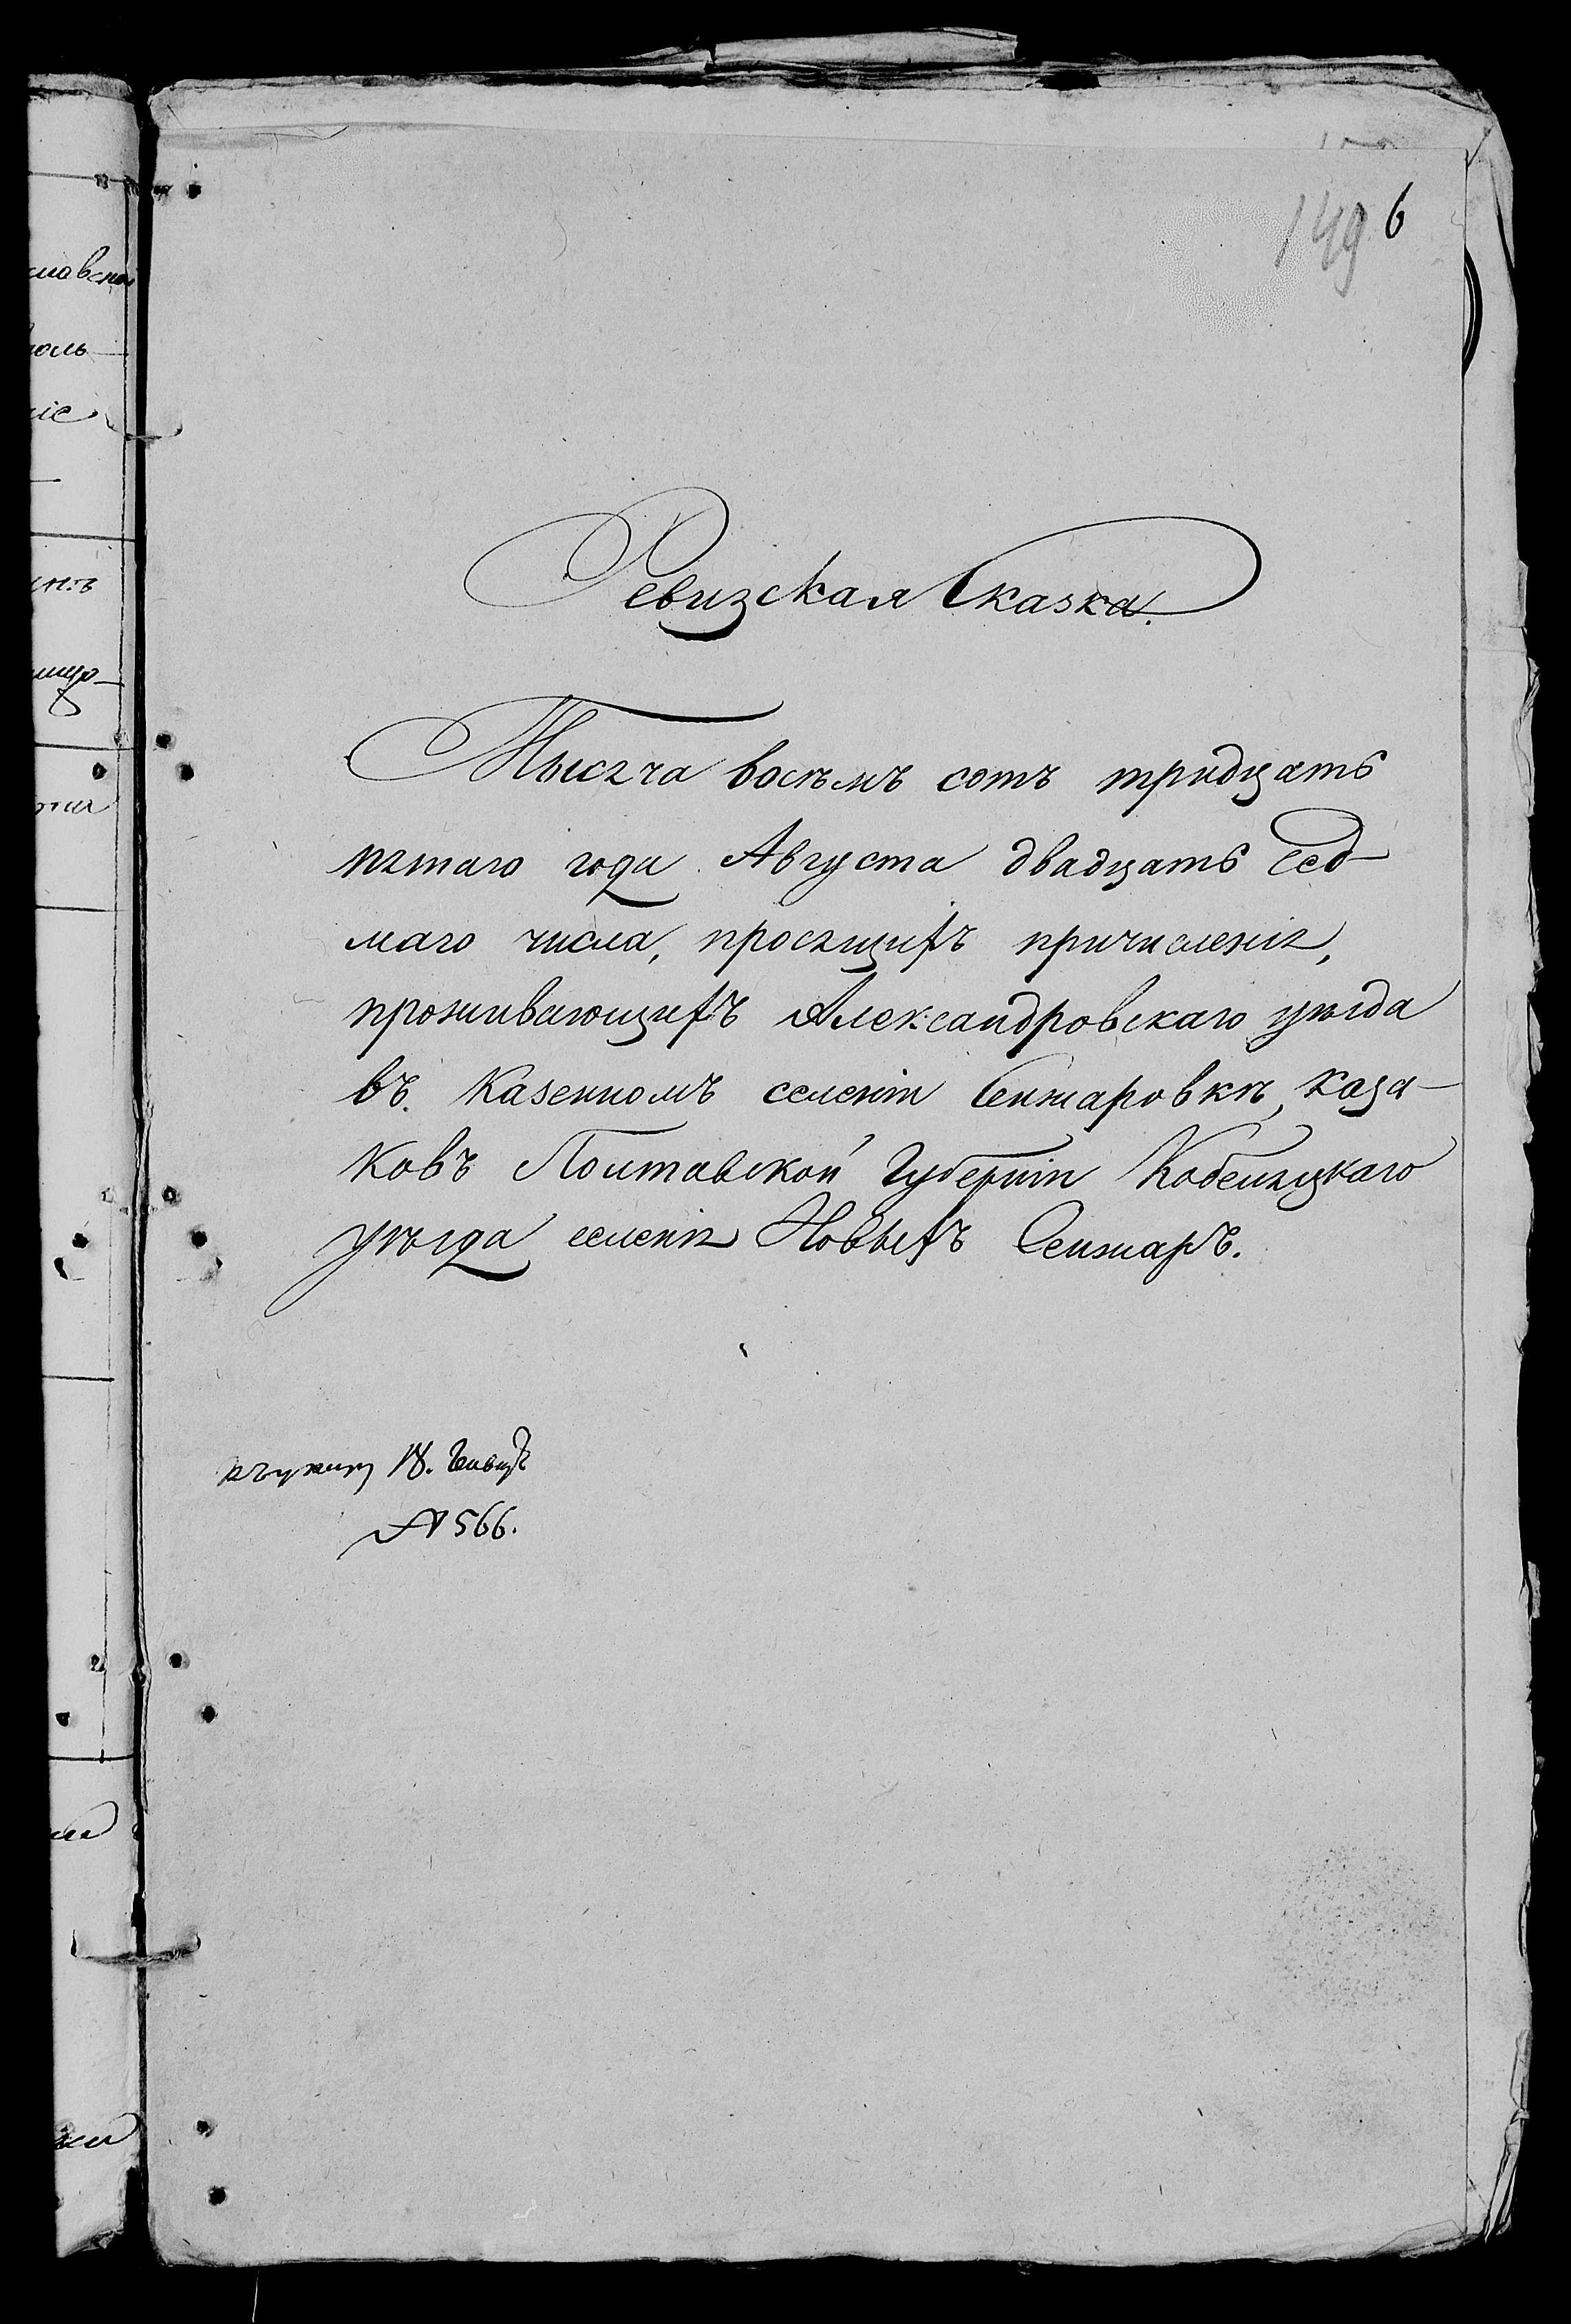 149 6
Ревизская Сказка.
Тысяча восемъ сотъ тридцать
пятаго года Августа двадцать сед-
маго числа, просящихъ причисленія,
проживающихъ Александровскаго уѣзда
въ Казенномъ селеніи Сенжаровкѣ, каза-
ковъ Полтавской Губерніи Кобеляцкаго
уѣзда селенія Новыхъ Сенжаръ.
18.
№ 566.